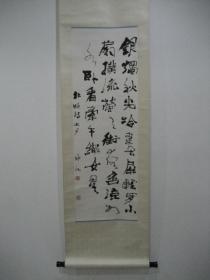 銀燭秋光冷畫屏輕羅小
扇撲流螢天街夜色涼如
水卧看牽牛織女星
杜牧詩